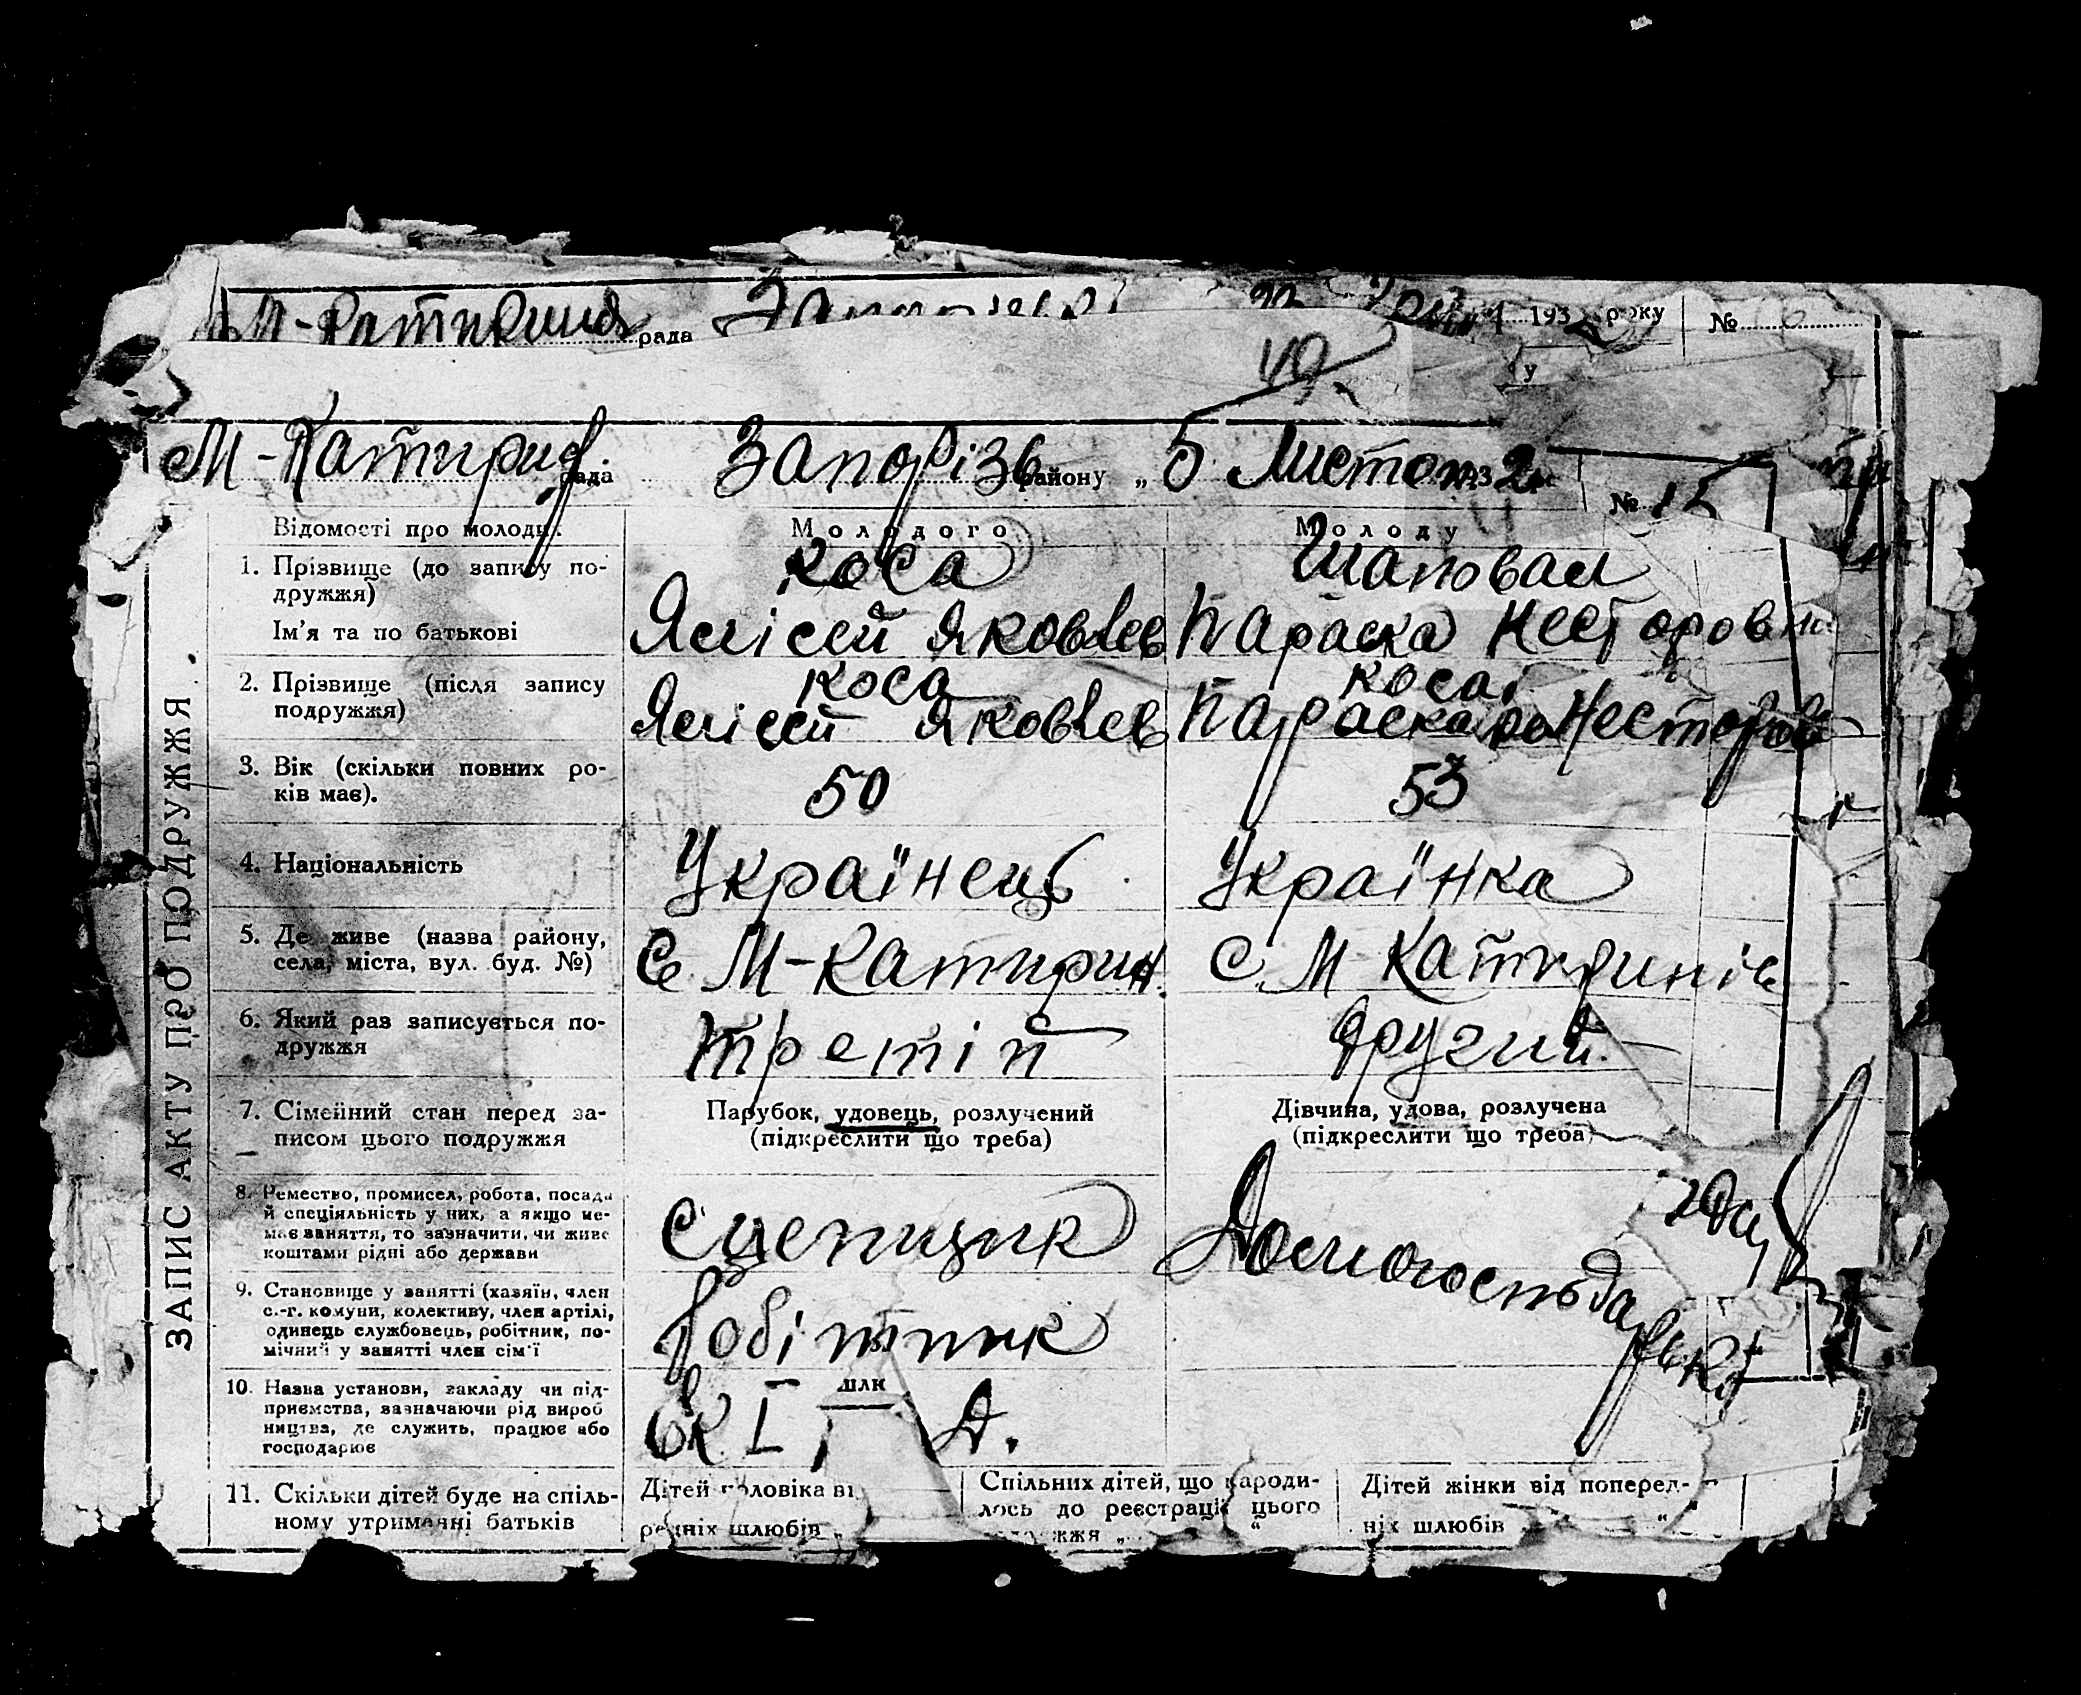 рада 193 року №
у
М-Катирин рада Запорізь району „ 5 Листоп 193 2 № 15
Відомості про молодих: Молодого Молоду
1. Прізвище (до запису по-
дружжя)
Коса Шаповал
Ім'я та по батькові
Яків Яковлев Параска Несторовна
2. Прізвище (після запису
подружжя)
Коса Коса
Яковлев Параска Несторов
3. Вік (скільки повних ро-
ків має).
50 53
4. Національність
Українець Українка
5. Де живе (назва району,
села, міста, вул. буд. №)
С. М-Катирин. С. М Катиринів
6. Який раз записується по-
дружжя
Третій Другий.
7. Сімейний стан перед за-
писом цього подружжя
Парубок, удовець, розлучений
(підкреслити що треба)
Дівчина, удова, розлучена
(підкреслити що треба)
8. Ремество, промисел, робота, посада
й спеціяльність у них, а якщо не-
має заняття, то зазначити, чи живе
коштами рідні або держави
Сцепщик
9. Становище у занятті (хазяїн, член
с.-г. комуни, колективу, член артілі,
одинець службовець, робітник, по-
мічний у занятті член сім'ї
Робітник
10. Назва установи, закладу чи під-
приємства, зазначаючи рід вироб
ництва, де служить, працює або
господарює
11. Скільки дітей буде на спіль-
ному утриманні батьків
Дітей чоловіка
редніх шлюбів „
Спільних дітей, що народи-
лось до реєстрації цього
„ “
Дітей жінки від поперед-
ніх шлюбів „ “
ЗАПИС АКТУ ПРО ПОДРУЖЖЯ